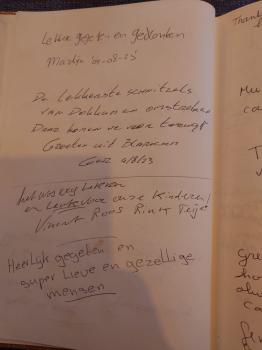 Lekker gegeten en gedronken
Martin 01-08-23
De Lekkerste schnitzels
van Dokkum en omstreken
Daar komen we voor terug
Groeten uit
Cees 4/8/23
het was erg Lekker
en Leuke voor onze Kinderen!
Vincent Roos Rink Teije
Heerlijk gegeten en
super Lieve en gezellige
mensen
Than
Mu
ca
T
v
Gre
ho
alw
ca